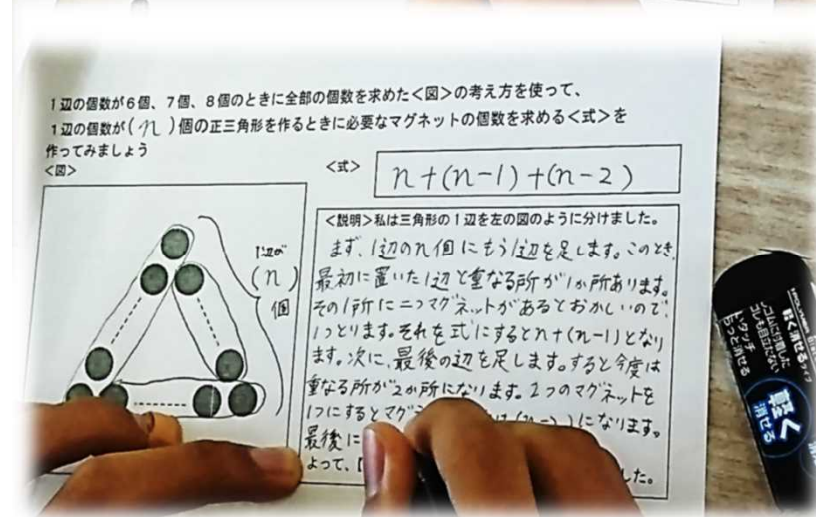 1辺の個数が6個、7個、8個のときに全部の個数を求めた<図>の考え方を使って、
1辺の個数が(n)個の正三角形を作るときに必要なマグネットの個数を求める<式>を
作ってみましょう
<図>
<式>
n+(n-1)+(n-2)
1辺が
(n)
個
<説明>私は三角形の1辺を左の図のように分けました。
まず、1辺のn個にもう1辺を足します。このとき、
最初に置いた1辺と重なる所が1か所あります。
その1所に二つマグネットがあるとおかしいので、
1つとります。それを式にするとn+(n-1)となり
ます。次に、最後の辺を足します。すると今度は
重なる所が2か所になります。2つのマグネットを
1つにするとマグネ
(n-2)になります。
最後に
よって、
した。
軽く消せるタイプ
ゴムに付着した
ゴミも目立たない
軽く
消せる